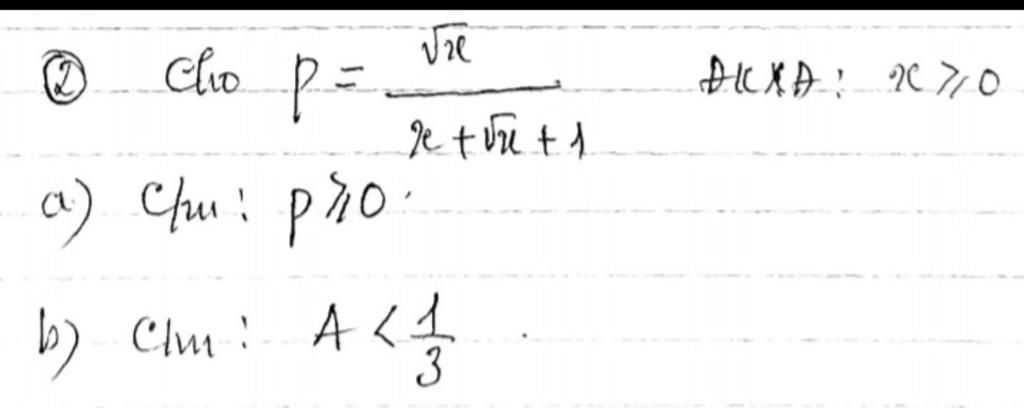 ② Cho P = √x / (x + √x + 1) ĐKXĐ: x ≥ 0
a) C/m: P ≥ 0.
b) C/m: A < 1/3.